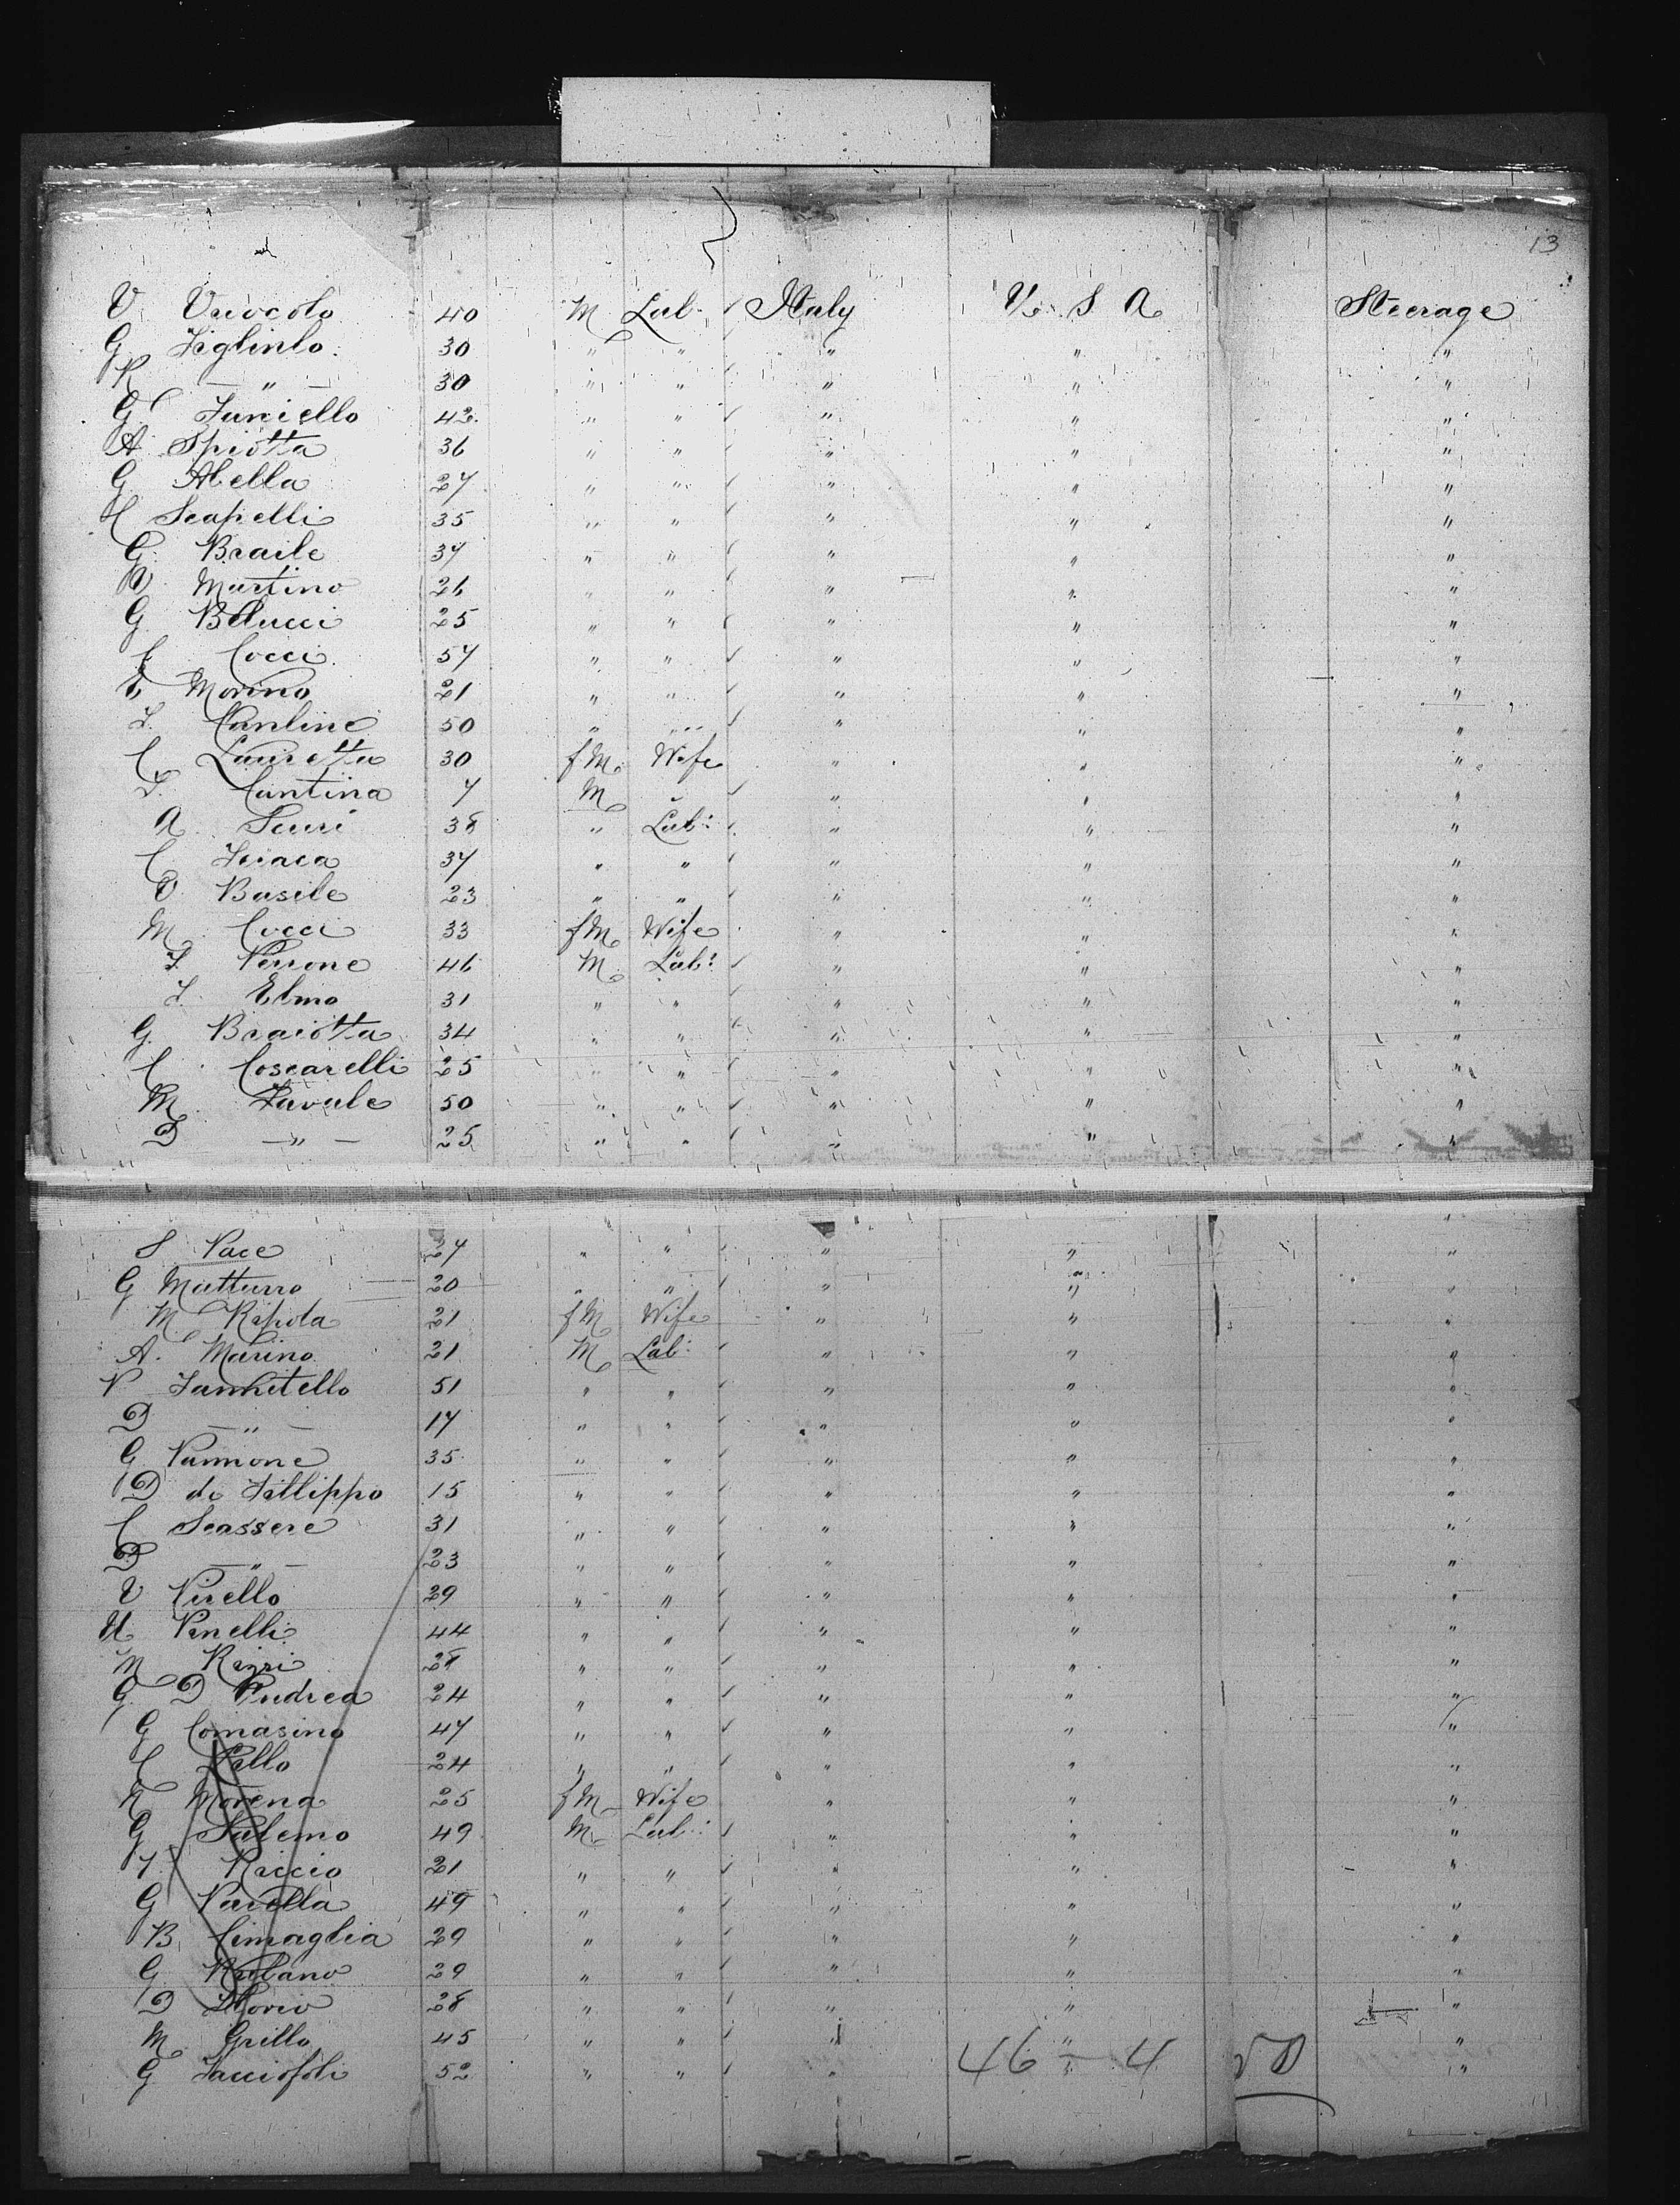 13
V Vriocolo 40 M Lab. ✓ Italy U. S. A Steerage
G Figlinlo 30 " " " " "
R — " — 30 " " ✓ " " "
G Juniello 42 " " ✓ " " "
A Spiotta 36 " " ✓ " " "
G Abella 27 " " ✓ " " "
C Scapelli 35 " " ✓ " " "
G Braile 37 " " ✓ " " "
V Martino 26 " " ✓ " " "
G Belucci 25 " " ✓ " " "
C Cocci 57 " " ✓ " " "
E Morino 21 " " ✓ " " "
F. Cantine 50 " " ✓ " " "
C Lauretta 30 fM Wife " " "
F. Cantina 7 M ✓ " " "
A Scuri 38 " Lab: ✓ " " "
C Sciaca 37 " " ✓ " " "
V Basile 23 " " ✓ " " "
M Cocci 33 fM Wife " " "
F. Perrone 46 M Lab: ✓ " " "
F. Elmo 31 " " ✓ " " "
G. Braiotta 34 " " ✓ " " "
C Coscarelli 25 " " ✓ " " "
M Favale 50 " " ✓ " " "
D — " — 25 " " ✓ " " "
S Pace 27 " " ✓ " " "
G Matturro 20 " " ✓ " " "
M Rapota 21 fM Wife " " "
A. Marino 21 M Lab: ✓ " " "
P Iannitello 51 " " ✓ " " "
D — " — 17 " " ✓ " " "
G Pannone 35 " " ✓ " " "
D de Fillippo 15 " " ✓ " " "
C Scassere 31 " " ✓ " " "
D — " — 23 " " ✓ " " "
V Pirello 29 " " ✓ " " "
U Pinelli 44 " " ✓ " " "
N 28 " " ✓ " " "
G D Andrea 24 " " ✓ " " "
G Comasino 47 " " ✓ " " "
C Lello 24 " " ✓ " " "
N Morena 25 fM Wife " " "
G Salemo 49 M Lab: ✓ " " "
F. Riccio 21 " " ✓ " " "
G Parella 49 " " ✓ " " "
B Cimaglia 29 " " ✓ " " "
G Rubano 29 " " ✓ " " "
D Iorio 28 " " ✓ " " "
M Grillo 45 " " ✓ " " "
G Facciofoli 52 " " ✓ " " "
46 — 4 50